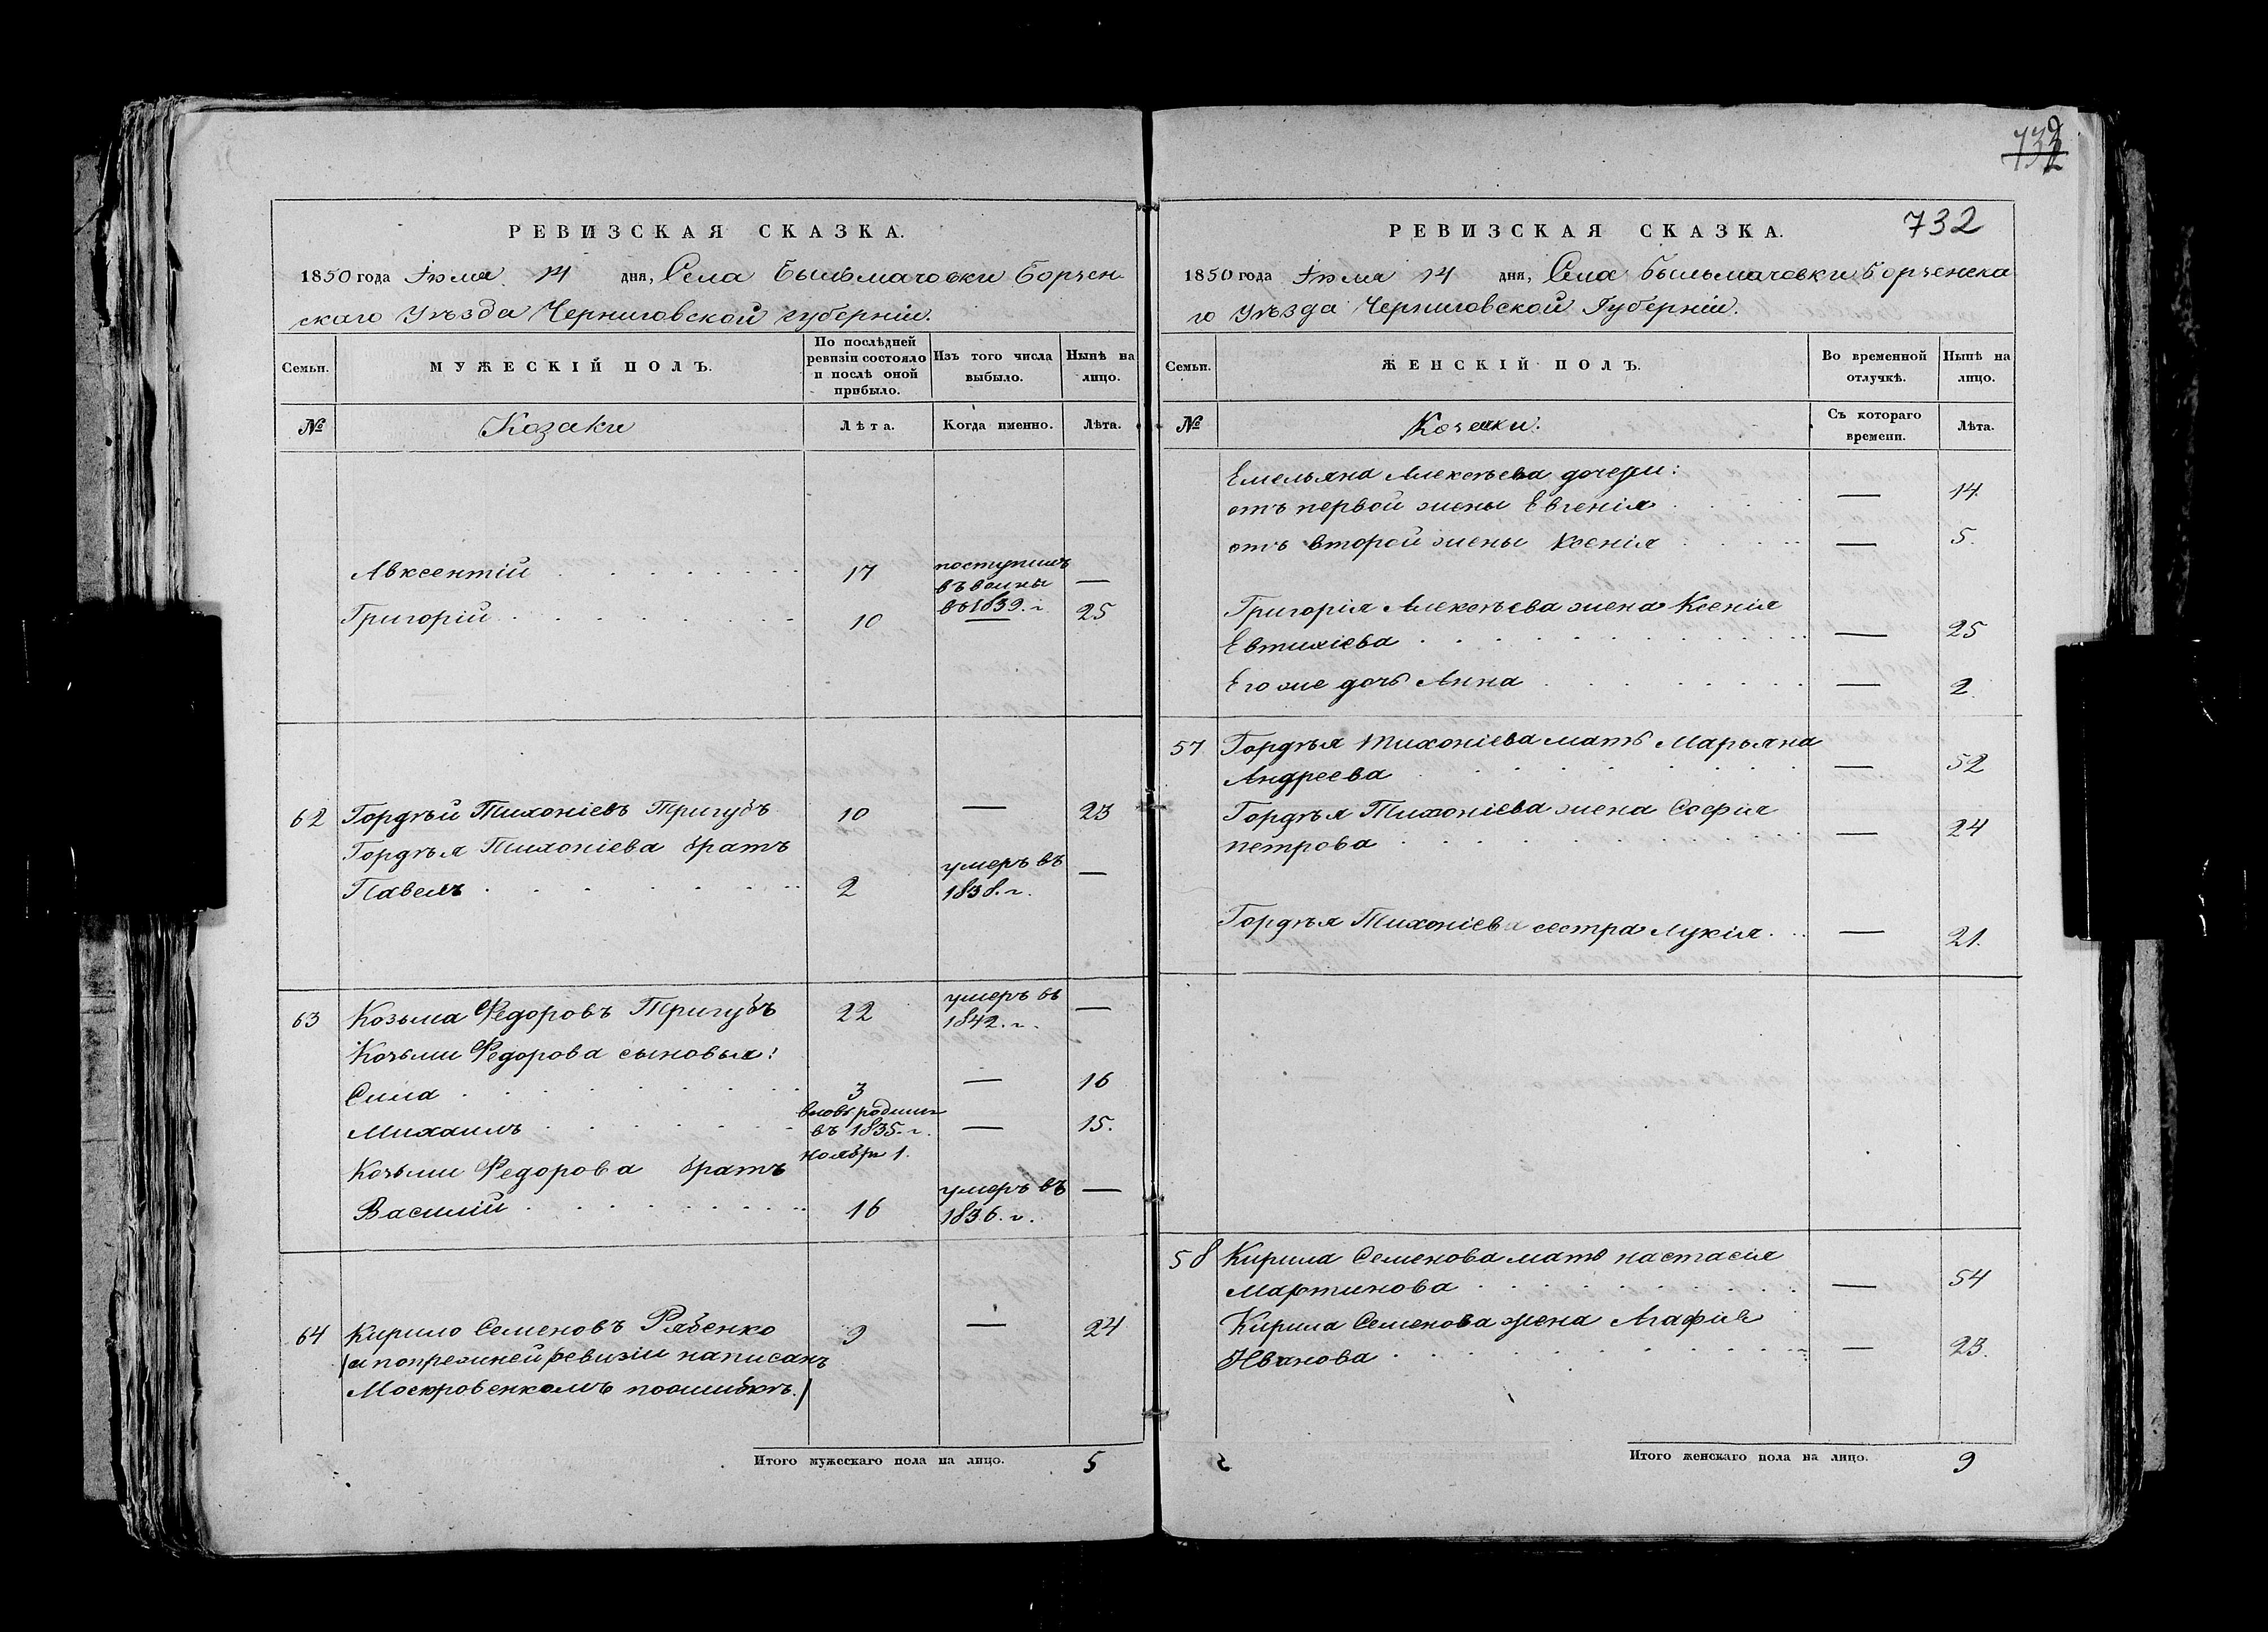 РЕВИЗСКАЯ СКАЗКА.
1850 года Іюля 14 дня, Села Бышьмачовки Борзен
скаго Уѣзда Черниговской губерніи.
Семьи.
МУЖЕСКІЙ ПОЛЪ.
По послѣдней
ревизіи состояло
и послѣ оной
прибыло.
Изъ того числа
выбыло.
Нынѣ на
лицо.
№
Козаки
Лѣта.
Когда именно.
Лѣта.
Авксентій 17 поступилъ
въ воины —
въ 1839. г.
Григорій 10 — 25
62 Гордѣй Тихоніевъ Тригубъ 10 — 23
Гордѣя Тихоніева братъ
Павелъ 2 умеръ въ —
1838. г.
63 Козьма Федоровъ Тригубъ 22 умеръ въ —
1842. г.
Козьми Федорова сыновья:
Сила 3 — 16
Михаилъ вновь родился — 15.
въ 1835. г.
ноября 1.
Козьми Федорова братъ
Василій 16 умеръ въ —
1836. г.
64 Кирило Семеновъ Рябенко 9 — 24
(а попрежней ревизіи написанъ
поошибкѣ.)
Итого мужескаго пола на лицо. 5
732
РЕВИЗСКАЯ СКАЗКА.
1850 года Іюля 14 дня, Села Быльмачовки Борзенска
го Уѣзда Черниговской Губерніи.
Семьи.
ЖЕНСКІЙ ПОЛЪ.
Во временной
отлучкѣ.
Нынѣ на
лицо.
№
Козачки.
Съ котораго
времени.
Лѣта.
Емельяна Алексѣева дочери:
отъ первой жены Евгенія — 14.
отъ второй жены Ксенія — 5.
Григорія Алексѣева жена Ксенія
Евтихіева — 25
Его же дочь Анна — 2.
57 Гордѣя Тихоніева мать Марьяна
Андреева — 52
Гордѣя Тихоніева жена Софія
петрова — 24
Гордѣя Тихоніева сестра Лукія — 21.
58 Кирила Семенова мать настасія
Мартинова — 54
Кирила Семенова жена Агафія
Иванова — 23.
Итого женскаго пола на лицо. 9